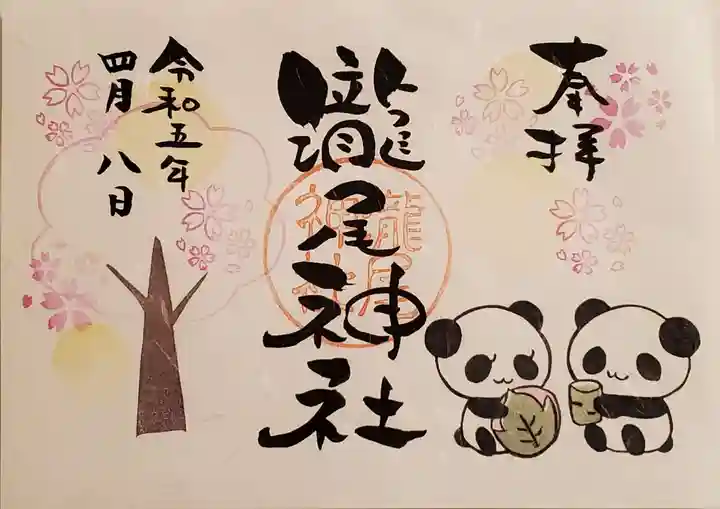 奉拝
龍尾神社
龍尾
神社
令和五年
四月八日